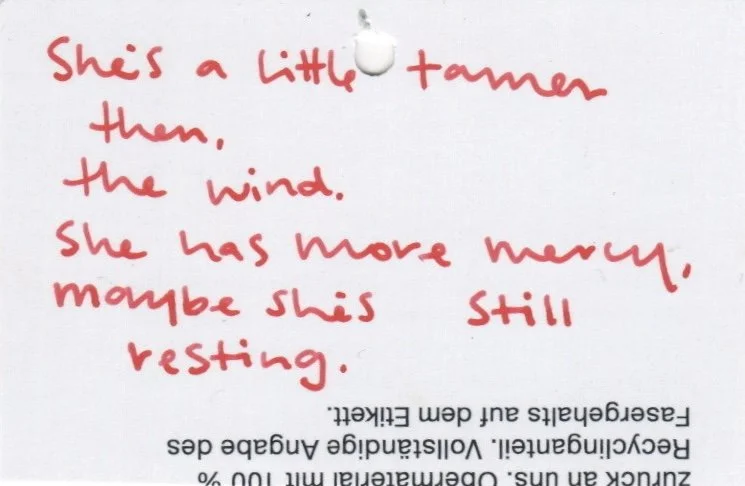 She's a little tamer
then,
the wind.
She has more mercy,
maybe she's still
resting.
zurück an uns. Obermaterial mit 100 %
Recyclinganteil. Vollständige Angabe des
Fasergehalts auf dem Etikett.